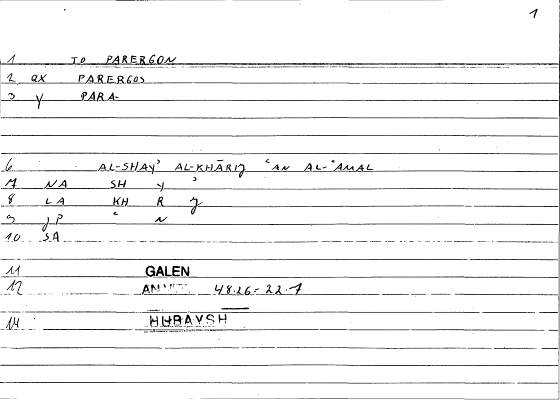 1
1 TO PARERGON
2 ax PARERGOS
3 y PARA-
6 AL-SHAYʾ AL-KHĀRIJ ʿAN AL-ʿAMAL
7 NA SH Y ʾ
8 LA KH R J
9 JP ʿ N
10 SA
11 GALEN
12 48.26 = 22.7
14 HUBAYSH